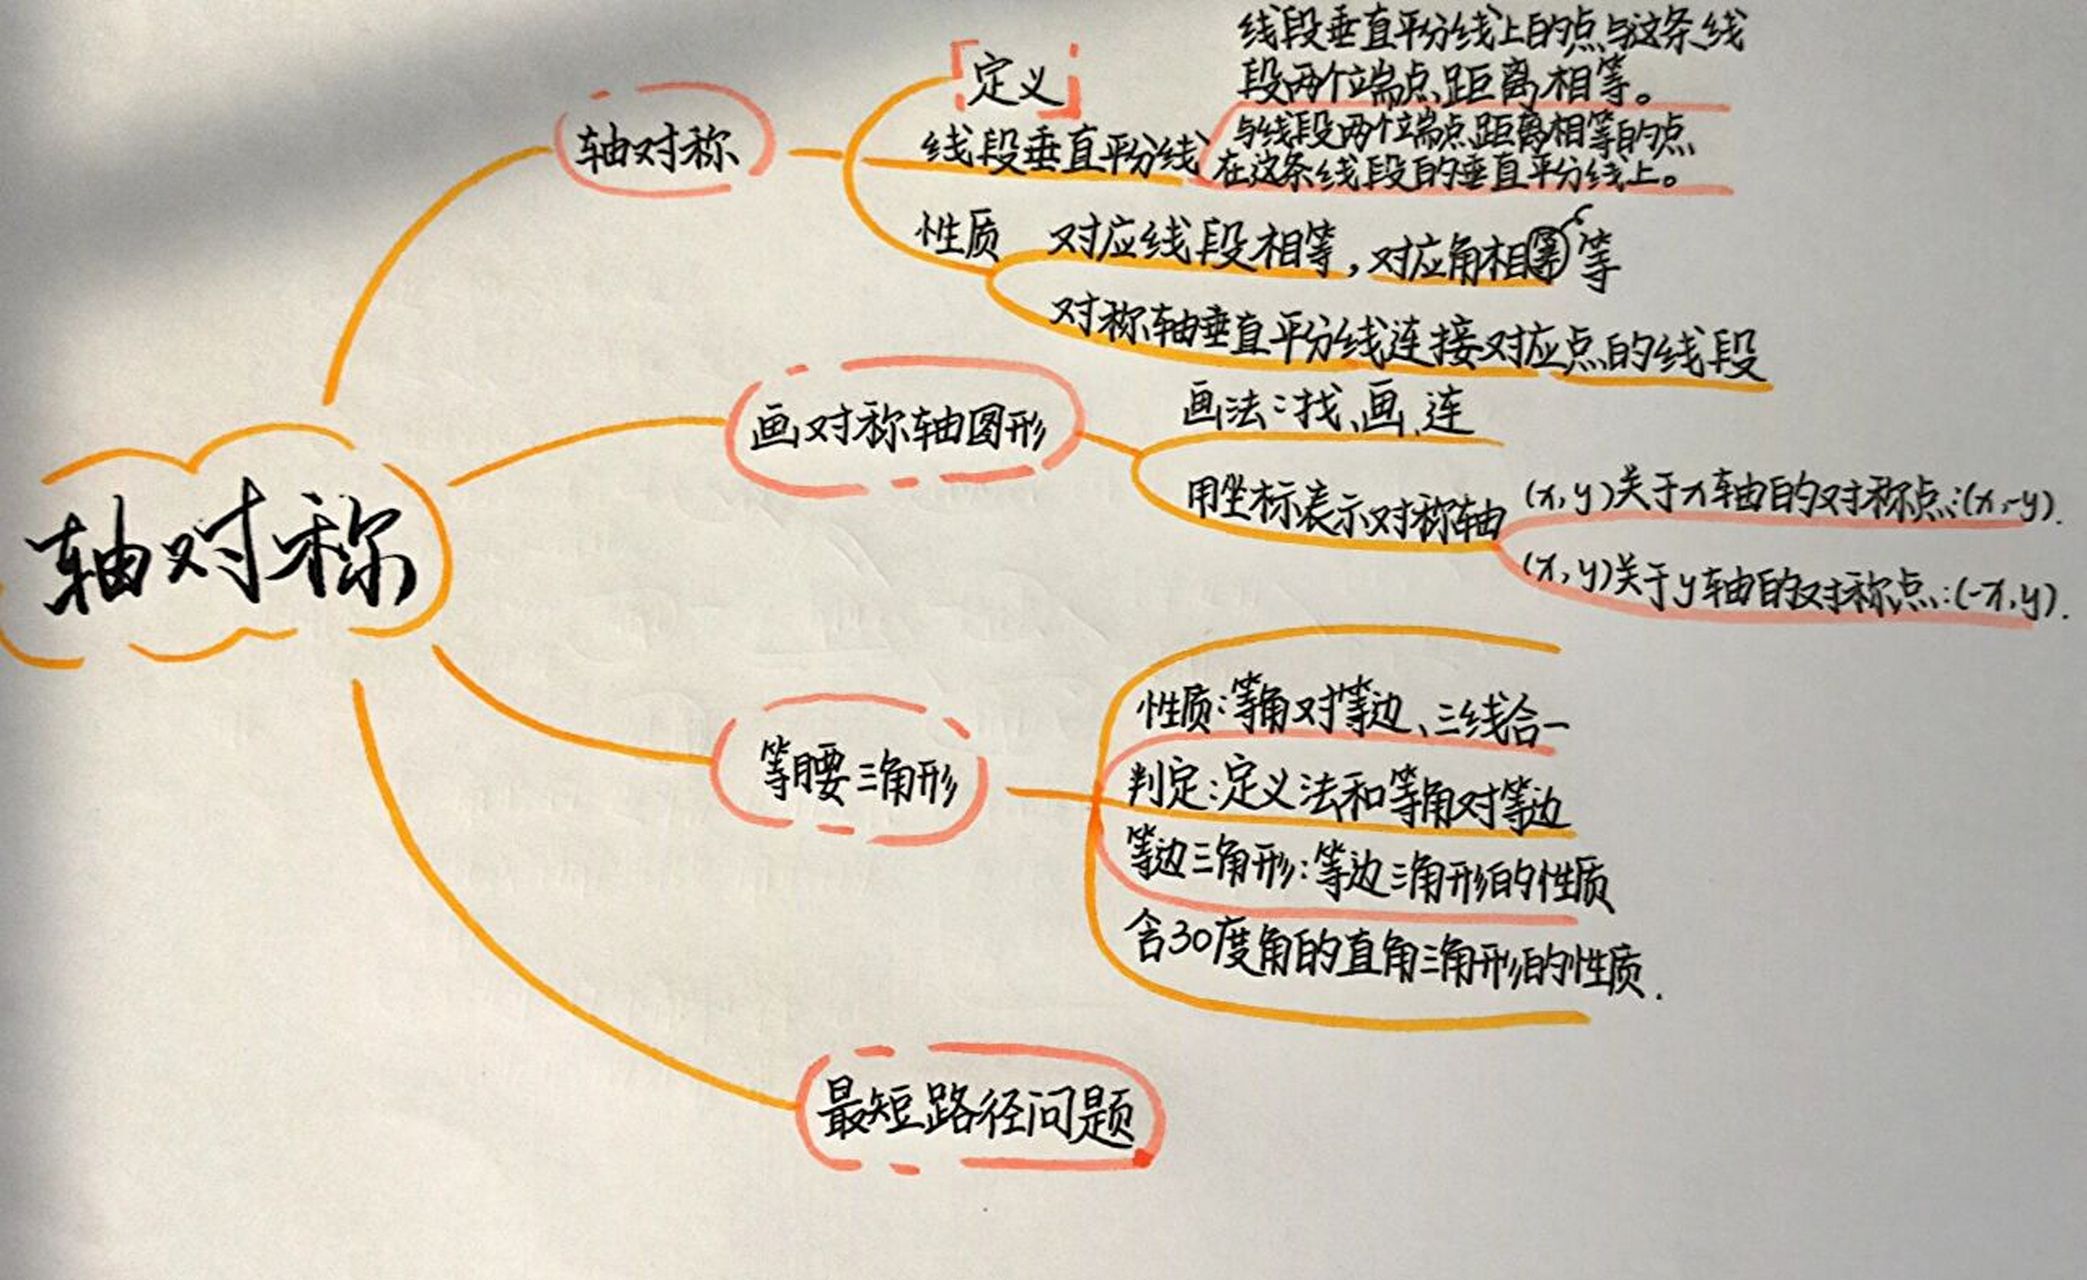 轴对称
轴对称
定义
线段垂直平分线
线段垂直平分线上的点与这条线
段两个端点距离相等。
与线段两个端点距离相等的点
在这条线段的垂直平分线上。
性质
对应线段相等，对应角相等
对称轴垂直平分线连接对应点的线段
画对称轴图形
画法：找、画、连
用坐标表示对称轴
(x,y)关于x轴的对称点：(x,-y).
(x,y)关于y轴的对称点：(-x,y).
等腰三角形
性质：等角对等边、三线合一
判定：定义法和等角对等边
等边三角形：等边三角形的性质
含30度角的直角三角形的性质.
最短路径问题